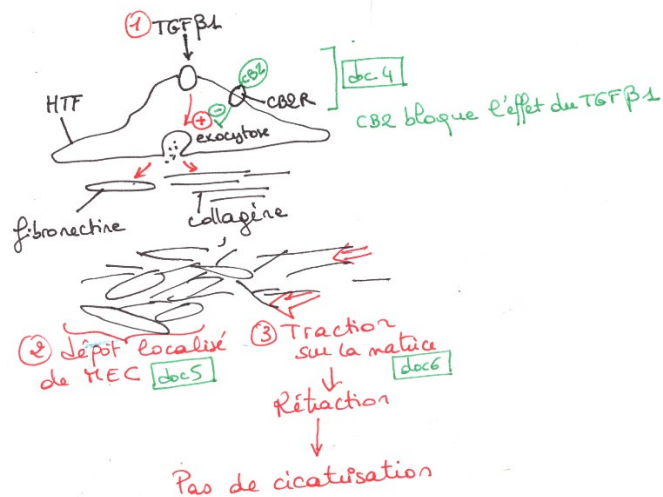 1 TGFβ1
CB2
doc 4
HTF
CB2R
CB2 bloque l'effet du TGFβ1
+
-
exocytose
fibronectine
collagène
2 dépôt localisé
de MEC doc5
3 Traction
sur la matrice
doc6
Rétraction
Pas de cicatrisation